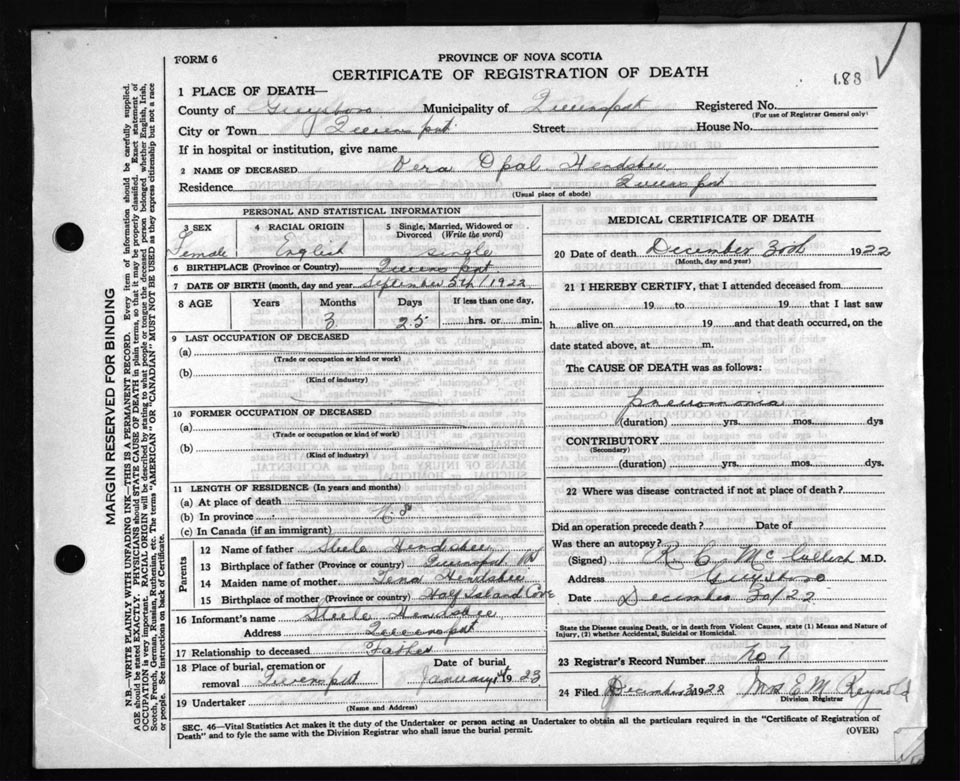 FORM 6
PROVINCE OF NOVA SCOTIA
CERTIFICATE OF REGISTRATION OF DEATH
188
1 PLACE OF DEATH—
County of Guysboro Municipality of Queensport Registered No.
(For use of Registrar General only)
City or Town Queensport Street House No.
If in hospital or institution, give name
2 NAME OF DECEASED Vera Opal Hendsbee
Residence Queensport
(Usual place of abode)
PERSONAL AND STATISTICAL INFORMATION
3 SEX 4 RACIAL ORIGIN 5 Single, Married, Widowed or Divorced (Write the word)
Female English Single
6 BIRTHPLACE (Province or Country) Queensport
7 DATE OF BIRTH (month, day and year) September 5th/1922
8 AGE Years Months Days If less than one day,
3 25 hrs. or min.
9 LAST OCCUPATION OF DECEASED
(a)
(Trade or occupation or kind or work)
(b)
(Kind of industry)
10 FORMER OCCUPATION OF DECEASED
(a)
(Trade or occupation or kind of work)
(b)
(Kind of industry)
11 LENGTH OF RESIDENCE (In years and months)
(a) At place of death
(b) In province
(c) In Canada (if an immigrant)
Parents
12 Name of father Steele Hendsbee
13 Birthplace of father (Province or country) Queensport NS
14 Maiden name of mother Lena Hendsbee
15 Birthplace of mother (Province or country) Half Island Cove
16 Informant's name Steele Hendsbee
Address Queensport
17 Relationship to deceased Father
18 Place of burial, cremation or removal Queensport Date of burial January 1st 1923
19 Undertaker
(Name and Address)
MEDICAL CERTIFICATE OF DEATH
20 Date of death December 30th 1922
(Month, day and year)
21 I HEREBY CERTIFY, that I attended deceased from
19 to 19 that I last saw
h alive on 19 and that death occurred, on the
date stated above, at m.
The CAUSE OF DEATH was as follows:
pneumonia
(duration) yrs. mos. dys
CONTRIBUTORY
(Secondary)
(duration) yrs. mos. dys.
22 Where was disease contracted if not at place of death?
Did an operation precede death? Date of
Was there an autopsy?
(Signed) R C McCullech M.D.
Address Guysboro
Date December 30/22
State the Disease causing Death, or in death from Violent Causes, state (1) Means and Nature of
Injury, (2) whether Accidental, Suicidal or Homicidal.
23 Registrar's Record Number No 7
24 Filed December 1922 Mrs E M Reynolds
Division Registrar
SEC. 46—Vital Statistics Act makes it the duty of the Undertaker or person acting as Undertaker to obtain all the particulars required in the "Certificate of Registration of
Death" and to fyle the same with the Division Registrar who shall issue the burial permit.
(OVER)
MARGIN RESERVED FOR BINDING
N.B.—WRITE PLAINLY WITH UNFADING INK—THIS IS A PERMANENT RECORD. Every item of information should be carefully supplied.
AGE should be stated EXACTLY. PHYSICIANS should STATE CAUSE OF DEATH in plain terms, so that it may be properly classified. Exact statement of
OCCUPATION is very important. RACIAL ORIGIN will be described by stating to what people or tongue the deceased person belonged whether English, Irish,
Scotch, French, German, Russian, Ruthenian, etc. The terms "AMERICAN" OR "CANADIAN" MUST NOT BE USED as they express citizenship but not a race
or people. See instructions on back of Certificate.